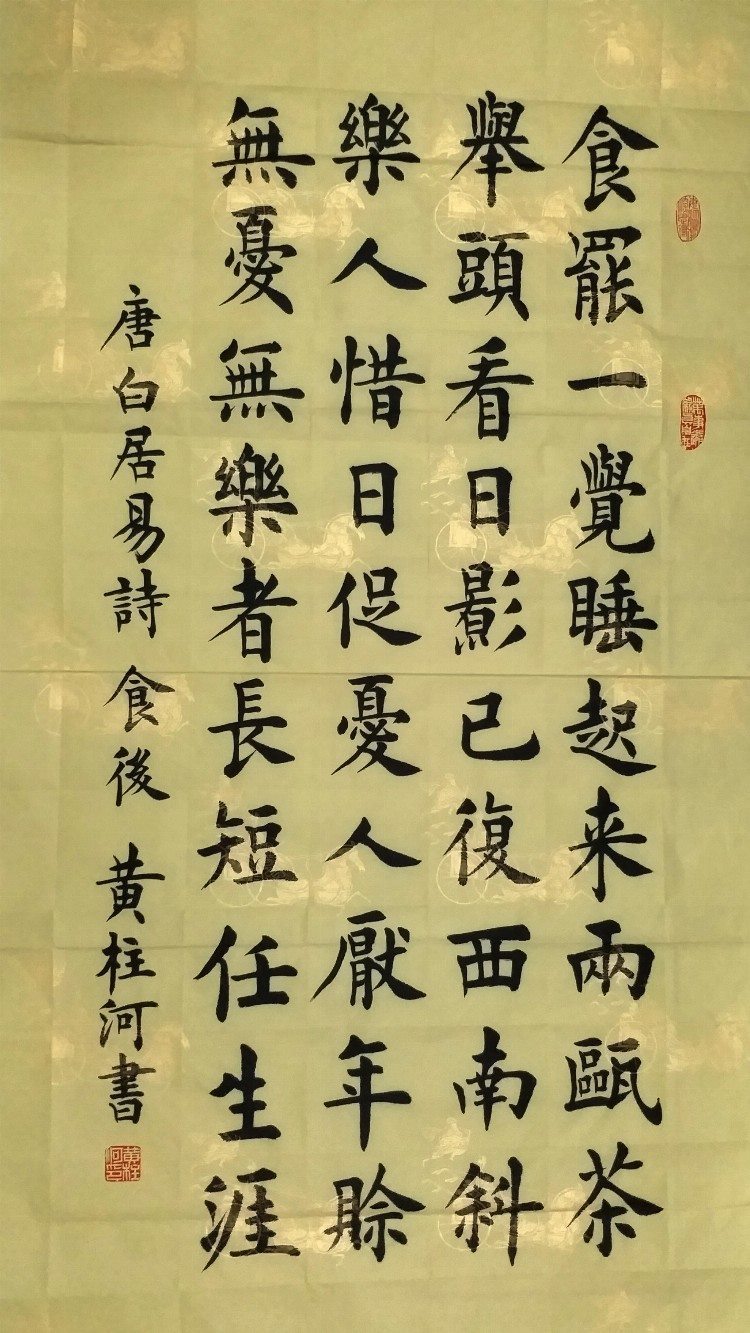 食罷一覺睡起来兩甌茶
舉頭看日影已復西南斜
樂人惜日促憂人厭年賒
無憂無樂者長短任生涯
唐白居易詩 食後 黄柱河書